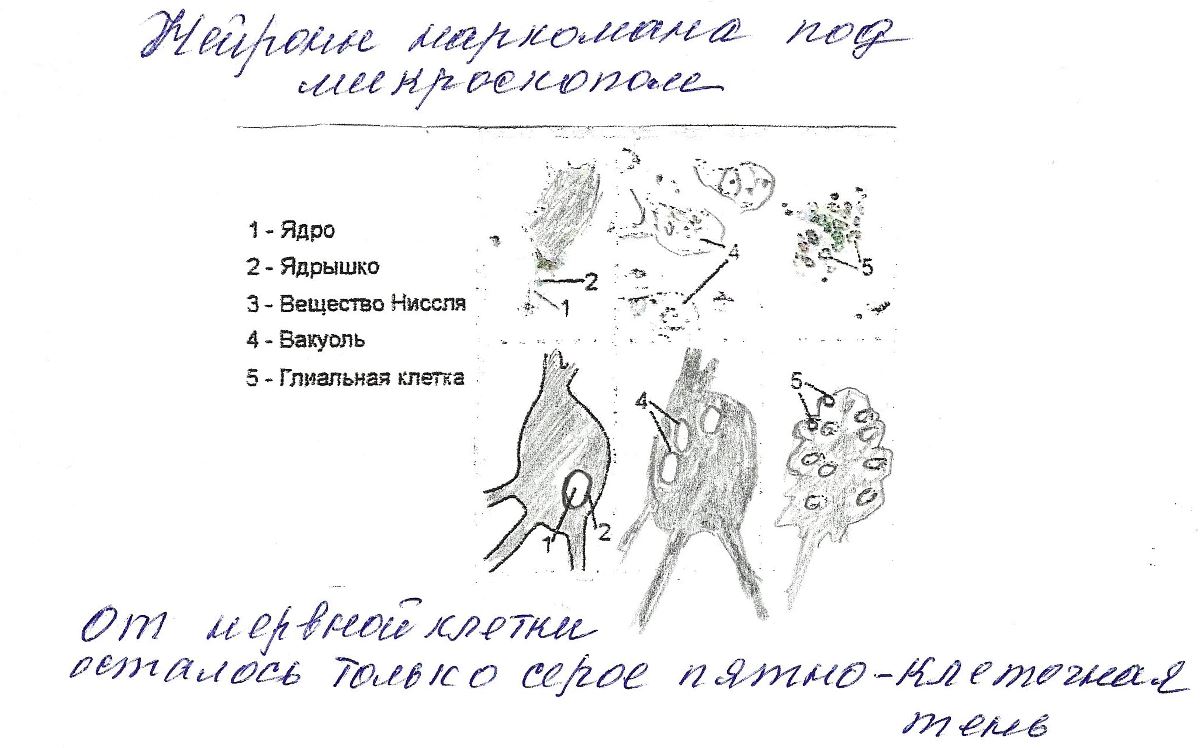 Нейроны наркомана под
микроскопом
1 - Ядро
2 - Ядрышко
3 - Вещество Ниссля
4 - Вакуоль
5 - Глиальная клетка
2
1
4
5
4
5
1
2
От нервной клетки
осталось только серое пятно-клеточная
тень